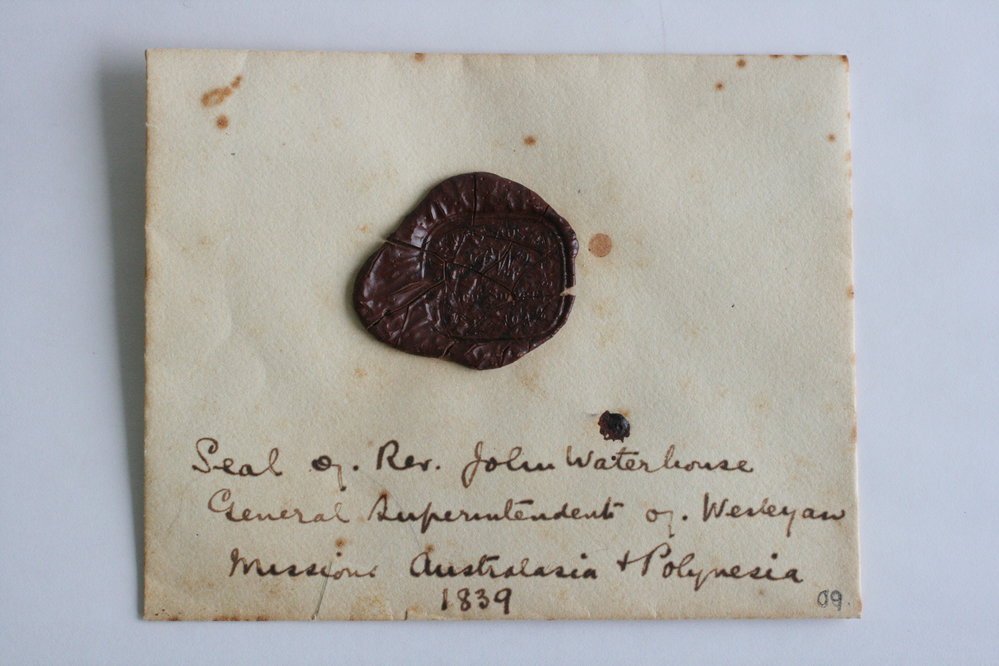 Seal of. Rev. John Waterhouse
General Superintendent of. Wesleyan
Missions Australasia + Polynesia
1839
09.